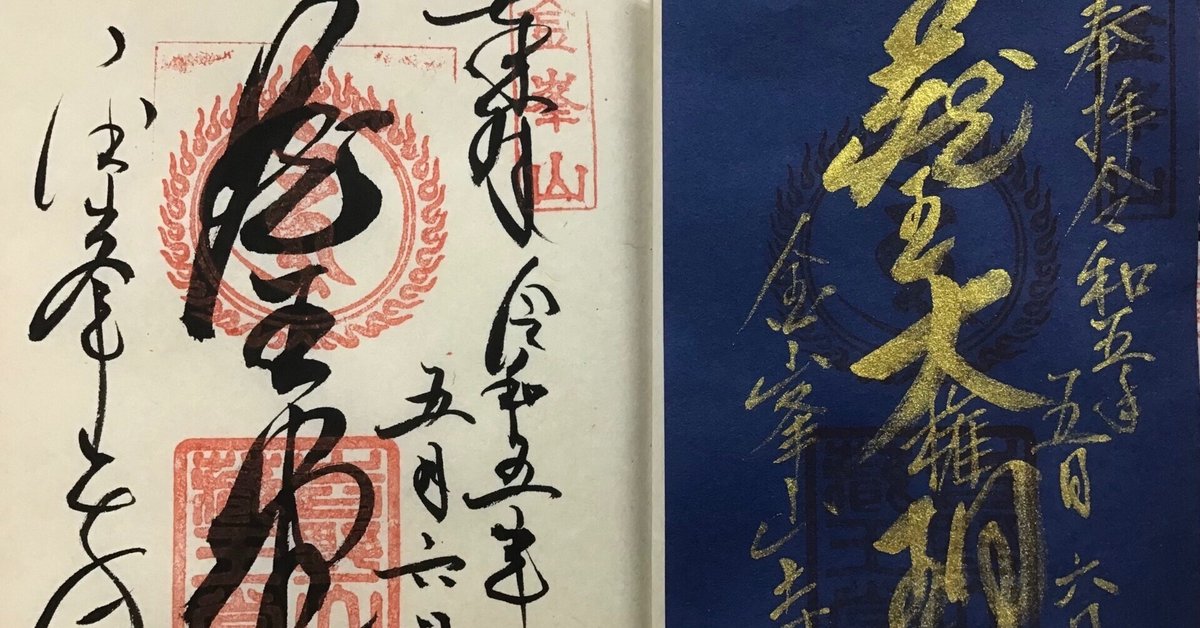 奉拝令和五年
五月六日
蔵王大権現
金峯山寺
金峯山
奉拝
令和五年
五月六日
蔵王
金峯山寺